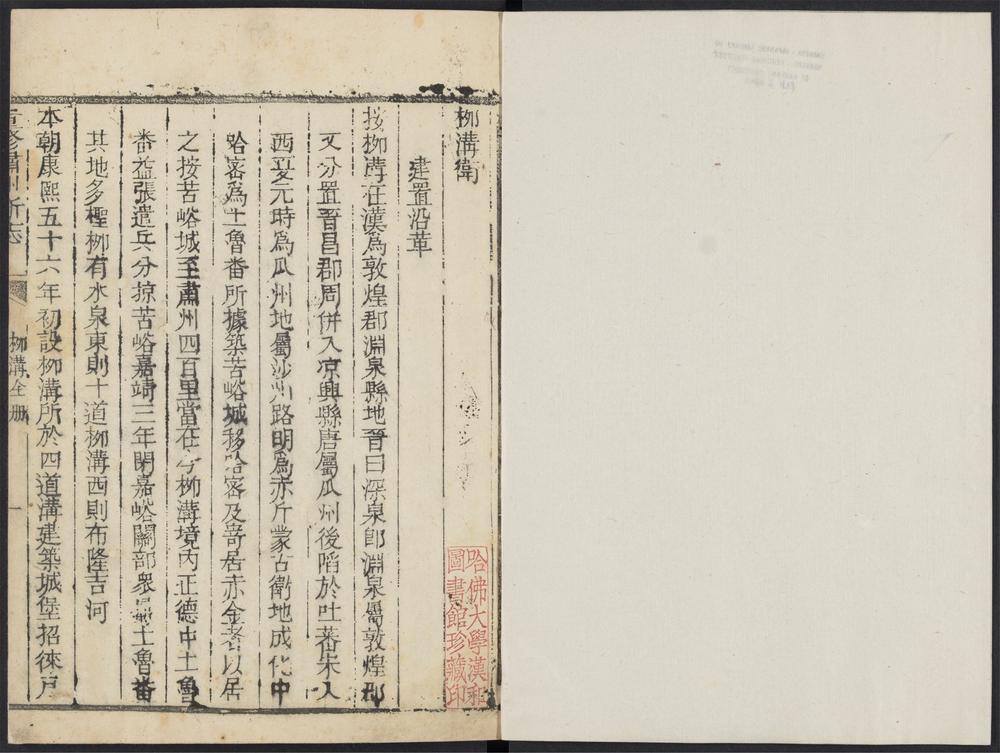 柳溝衛
建置沿革
按柳溝在漢爲敦煌郡淵泉縣地晉曰深泉卽淵泉屬敦煌郡
又分置晉昌郡周併入凉興縣唐屬瓜州後陷於吐蕃宋入
西夏元時爲瓜州地屬沙州路明爲赤斤蒙古衛地成化中
哈密爲土魯番所據築苦峪城移哈密及寄居赤金者以居
之按苦峪城至肅州四百里當在今柳溝境內正德中土魯
番益張遣兵分掠苦峪嘉靖三年閉嘉峪關部衆土魯番
其地多檉柳有水泉東則十道柳溝西則布隆吉河
本朝康熙五十六年初設柳溝所於四道溝建築城堡招徠戶
修肅州新志
柳溝全册
一
哈佛大學漢和
圖書館珍藏印